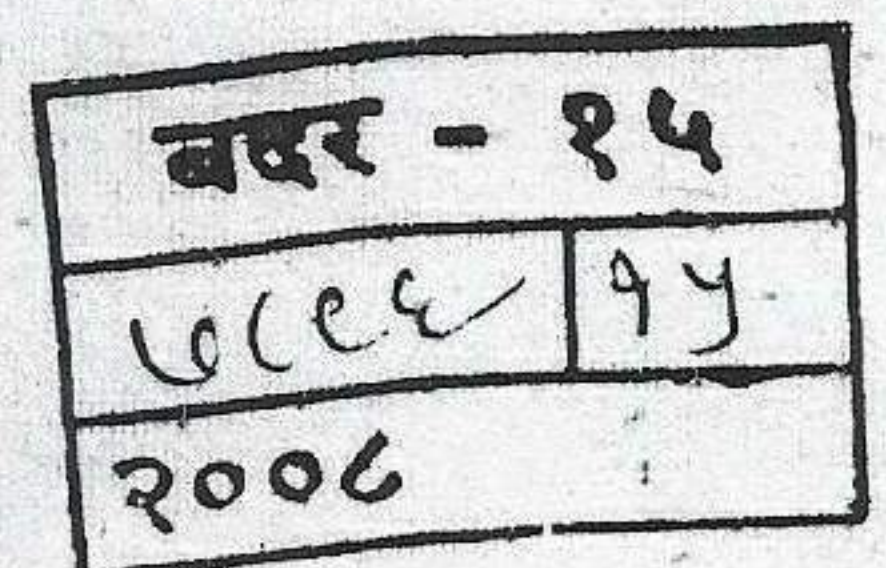 बदर - १५
७८९६ १५
२००८